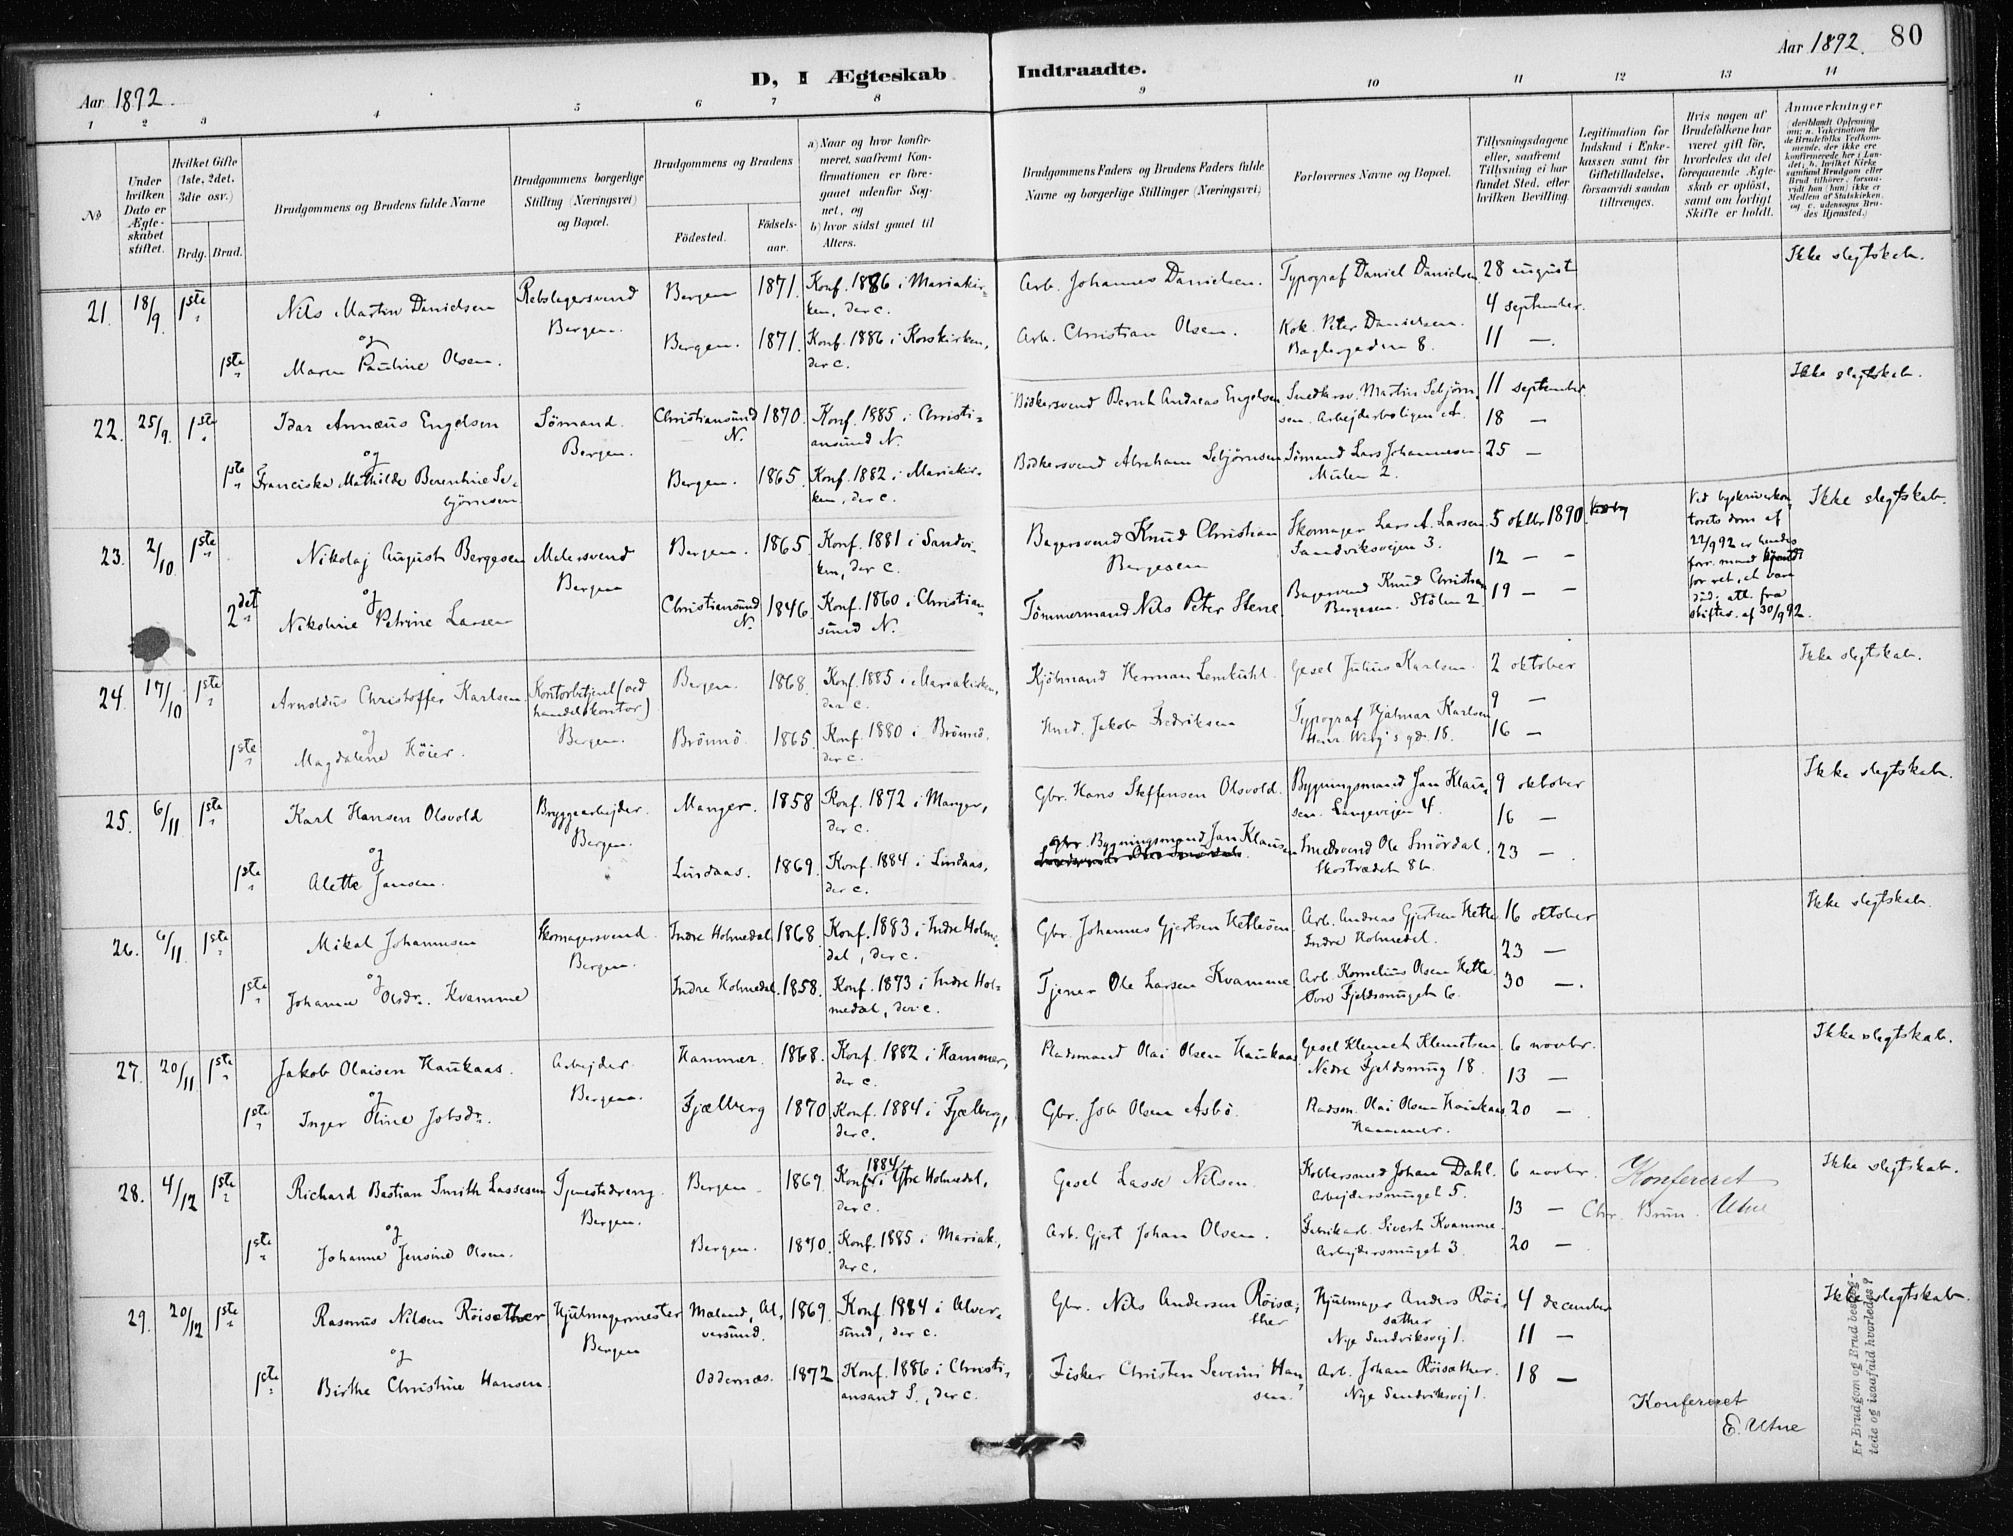 Aar 1892.
D, I Ægteskab Indtraadte.
Aar 1892. 80
1 2 3 4 5 6 7 8 9 10 11 12 13 14
No
Under hvilken Dato er Ægteskabet stiftet.
Hvilket Gifte (1ste, 2det, 3die osv.)
Brdg. Brud.
Brudgommens og Brudens fulde Navne
Brudgommens borgerlige Stilling (Næringsvei) og Bopæl.
Brudgommens og Brudens
Födested. Födselsaar.
a) Naar og hvor konfirmeret, saafremt Konfirmationen er foregaaet udenfor Sognet, og
b) hvor sidst gaaet til Alters.
Brudgommens Faders og Brudens Faders fulde Navne og borgerlige Stillinger (Næringsvei)
Forlovernes Navne og Bopæl.
Tillysningsdagene eller, saafremt Tillysning ei har fundet Sted, efter hvilken Bevilling.
Legitimation for Indskud i Enkekassen samt for Giftetilladelse, forsaavidt saadan tiltrænges.
Hvis nogen af Brudefolkene har været gift för, hvorledes da det foregaaende Ægteskab er oplöst, samt om lovligt Skifte er holdt.
Anmærkninger
21. 18/9 1ste Nils Martin Danielsen Rebslagersvend Bergen 1871. Konf. 1886 i Mariakir-
Bergen. ken, der c.
og
1ste Maren Pauline Olsen. Bergen. 1871. Konf. 1886 i Korskirken,
der c.
Arb. Johannes Danielsen. Typograf Daniel Danielsen 28 august Ikke slegtskab.
4 september.
Arb. Christian Olsen. Kok. Peter Danielsen. 11 —.
Baglergaden 8.
22. 25/9. 1ste Idar Annæus Engelsen Sömand. Christiansund N. 1870. Konf. 1885 i Christi-
Bergen. ansund N.
og
1ste Franciska Mathilde Berentine Se-
björnsen Bergen. 1865. Konf. 1882 i Mariakir-
ken, der c.
Bödkersvend Bernt Andreas Engelsen. Smedkersv. Martin Sebjörn- 11 september. Ikke slegtskab.
sen. Arbejderboligen 18 —
Bödkersvend Abraham Sebjörnsen Sömand Lars Johannesen 25 —
Mulen 2.
23. 2/10. 1ste Nikolaj August Bergesen Malersvend Bergen. 1865 Konf. 1881 i Sandvi-
Bergen ken, der c.
og
2det Nikoline Petrine Larsen Christiansund N. 1846. Konf. 1860 i Christian-
sund N.
Bagersvend Knud Christian Skomager Lars A. Larsen 5 oktbr 1890. Ikke slegtskab.
Bergesen Sandviksvejen 3. 12 — —
Tömmermand Nils Peter Stene Bagersvend Knud Christian 19 — —
Bergesen. Stölen 2
Ved byskriverkon-
torets dom af
22/9 92 er hendes
forr. mand
for ret, at være
död. att. fra
skifter. af 30/9 92.
24. 17/10 1ste Arnoldus Christoffer Karlsen Kontorbetjent (ved Bergen. 1868. Konf. 1885 i Mariakirken,
handelskontor) der c.
og Bergen.
1ste Magdalene Höier. Brönnö 1865. Konf. 1880 i Brönnö.
der c.
Kjöbmand Herman Lemkuhl. Gesel Julius Karlsen. 2 oktober Ikke slegtskab.
9 —
Hmd. Jakob Fredriksen Typograf Hjalmar Karlsen 16 —
25. 6/11 1ste Karl Hansen Olsvold Bryggearbejder. Manger. 1858 Konf. 1872 i Manger,
Bergen. der c.
og
1ste Alette Jansen. Lindaas. 1869. Konf. 1884 i Lindaas,
der c.
Gbr. Hans Steffensen Olsvold. Bygningsmand Jan Klau- 9 oktober Ikke slegtskab.
sen. Langevejen 4. 16 —
Gbr. Bygningsmand Jan Klausen Smedsvend Ole Smördal. 23 —.
Skostrædet 8b.
26. 6/11 1ste Mikal Johannesen Skomagersvend. Indre Holmedal. 1868. Konf. 1883 i Indre Holme-
Bergen. dal, der c.
og
1ste Johanne Olsdr. Kvamme Indre Holmedal. 1858. Konf. 1873 i Indre Hol-
medal, der c.
Gbr. Johannes Gjertsen Hetlesen Arb. Andreas Gjertsen Hetle. 16 oktober Ikke slegtskab.
Indre Holmedal. 23 —
Tjener Ole Larsen Kvamme Arb. Kornelius Olsen Hetle. 30 —.
Övre Fjeldsmuget 6.
27. 20/11 1ste Jakob Olaisen Haukaas. Arbejder Hammer. 1868. Konf. 1882 i Hammer,
Bergen. der c.
og
1ste Inger Oline Jobsdr. Fjælberg 1870. Konf. 1884 i Fjælberg,
der c.
Pladsmand Olai Olsen Haukaas Gesel Klemet Klemetsen. 6 novbr. Ikke slegtskab.
Nedre Fjeldsmug 18. 13 —
Gbr. Job Olsen Asbö. Pladsm. Olai Olsen Haukaas. 20 —.
Hammer.
28. 4/12 1ste Richard Bastian Smith Lassesen Tjenestedreng. Bergen. 1869. Konf. 1884 i Ytre Holmedal,
Bergen. der c.
og
1ste Johanne Jensine Olsen. Bergen. 1870. Konf. 1885 i Mariak.,
der c.
Gesel Lasse Nilsen. Kobbersmed Johan Dahl. 6 novbr. Konfereret Ikke slegtskab.
Arbejdersmuget 5. 13 — Chr. Brun. Utne
Arb. Gjert Johan Olsen. Fabrikarb. Sivert Kvamme. 20 —.
Arbejdersmuget 3.
29. 20/12 1ste Rasmus Nilsen Röisæther Hjulmagermester Mæland, Al- 1869. Konf. 1884 i Alver-
Bergen versund. sund, der c.
og
1ste Birthe Christine Hansen. Oddernæs. 1872 Konf. 1886 i Christi-
ansand S., der c.
Gbr. Nils Andersen Röisæ- Hjulmager Anders Röi- 4 december Ikke slegtskab.
ther sæther
Nye Sandviksvej 1. 11 —
Fisker Christen Severin Han- Arb. Johan Röisæther. 18 —
sen. Nye Sandviksvej 1.
Konfereret
E. Utne
Er Brudgom og Brud beslæg-
tede og isaafald hvorledes?